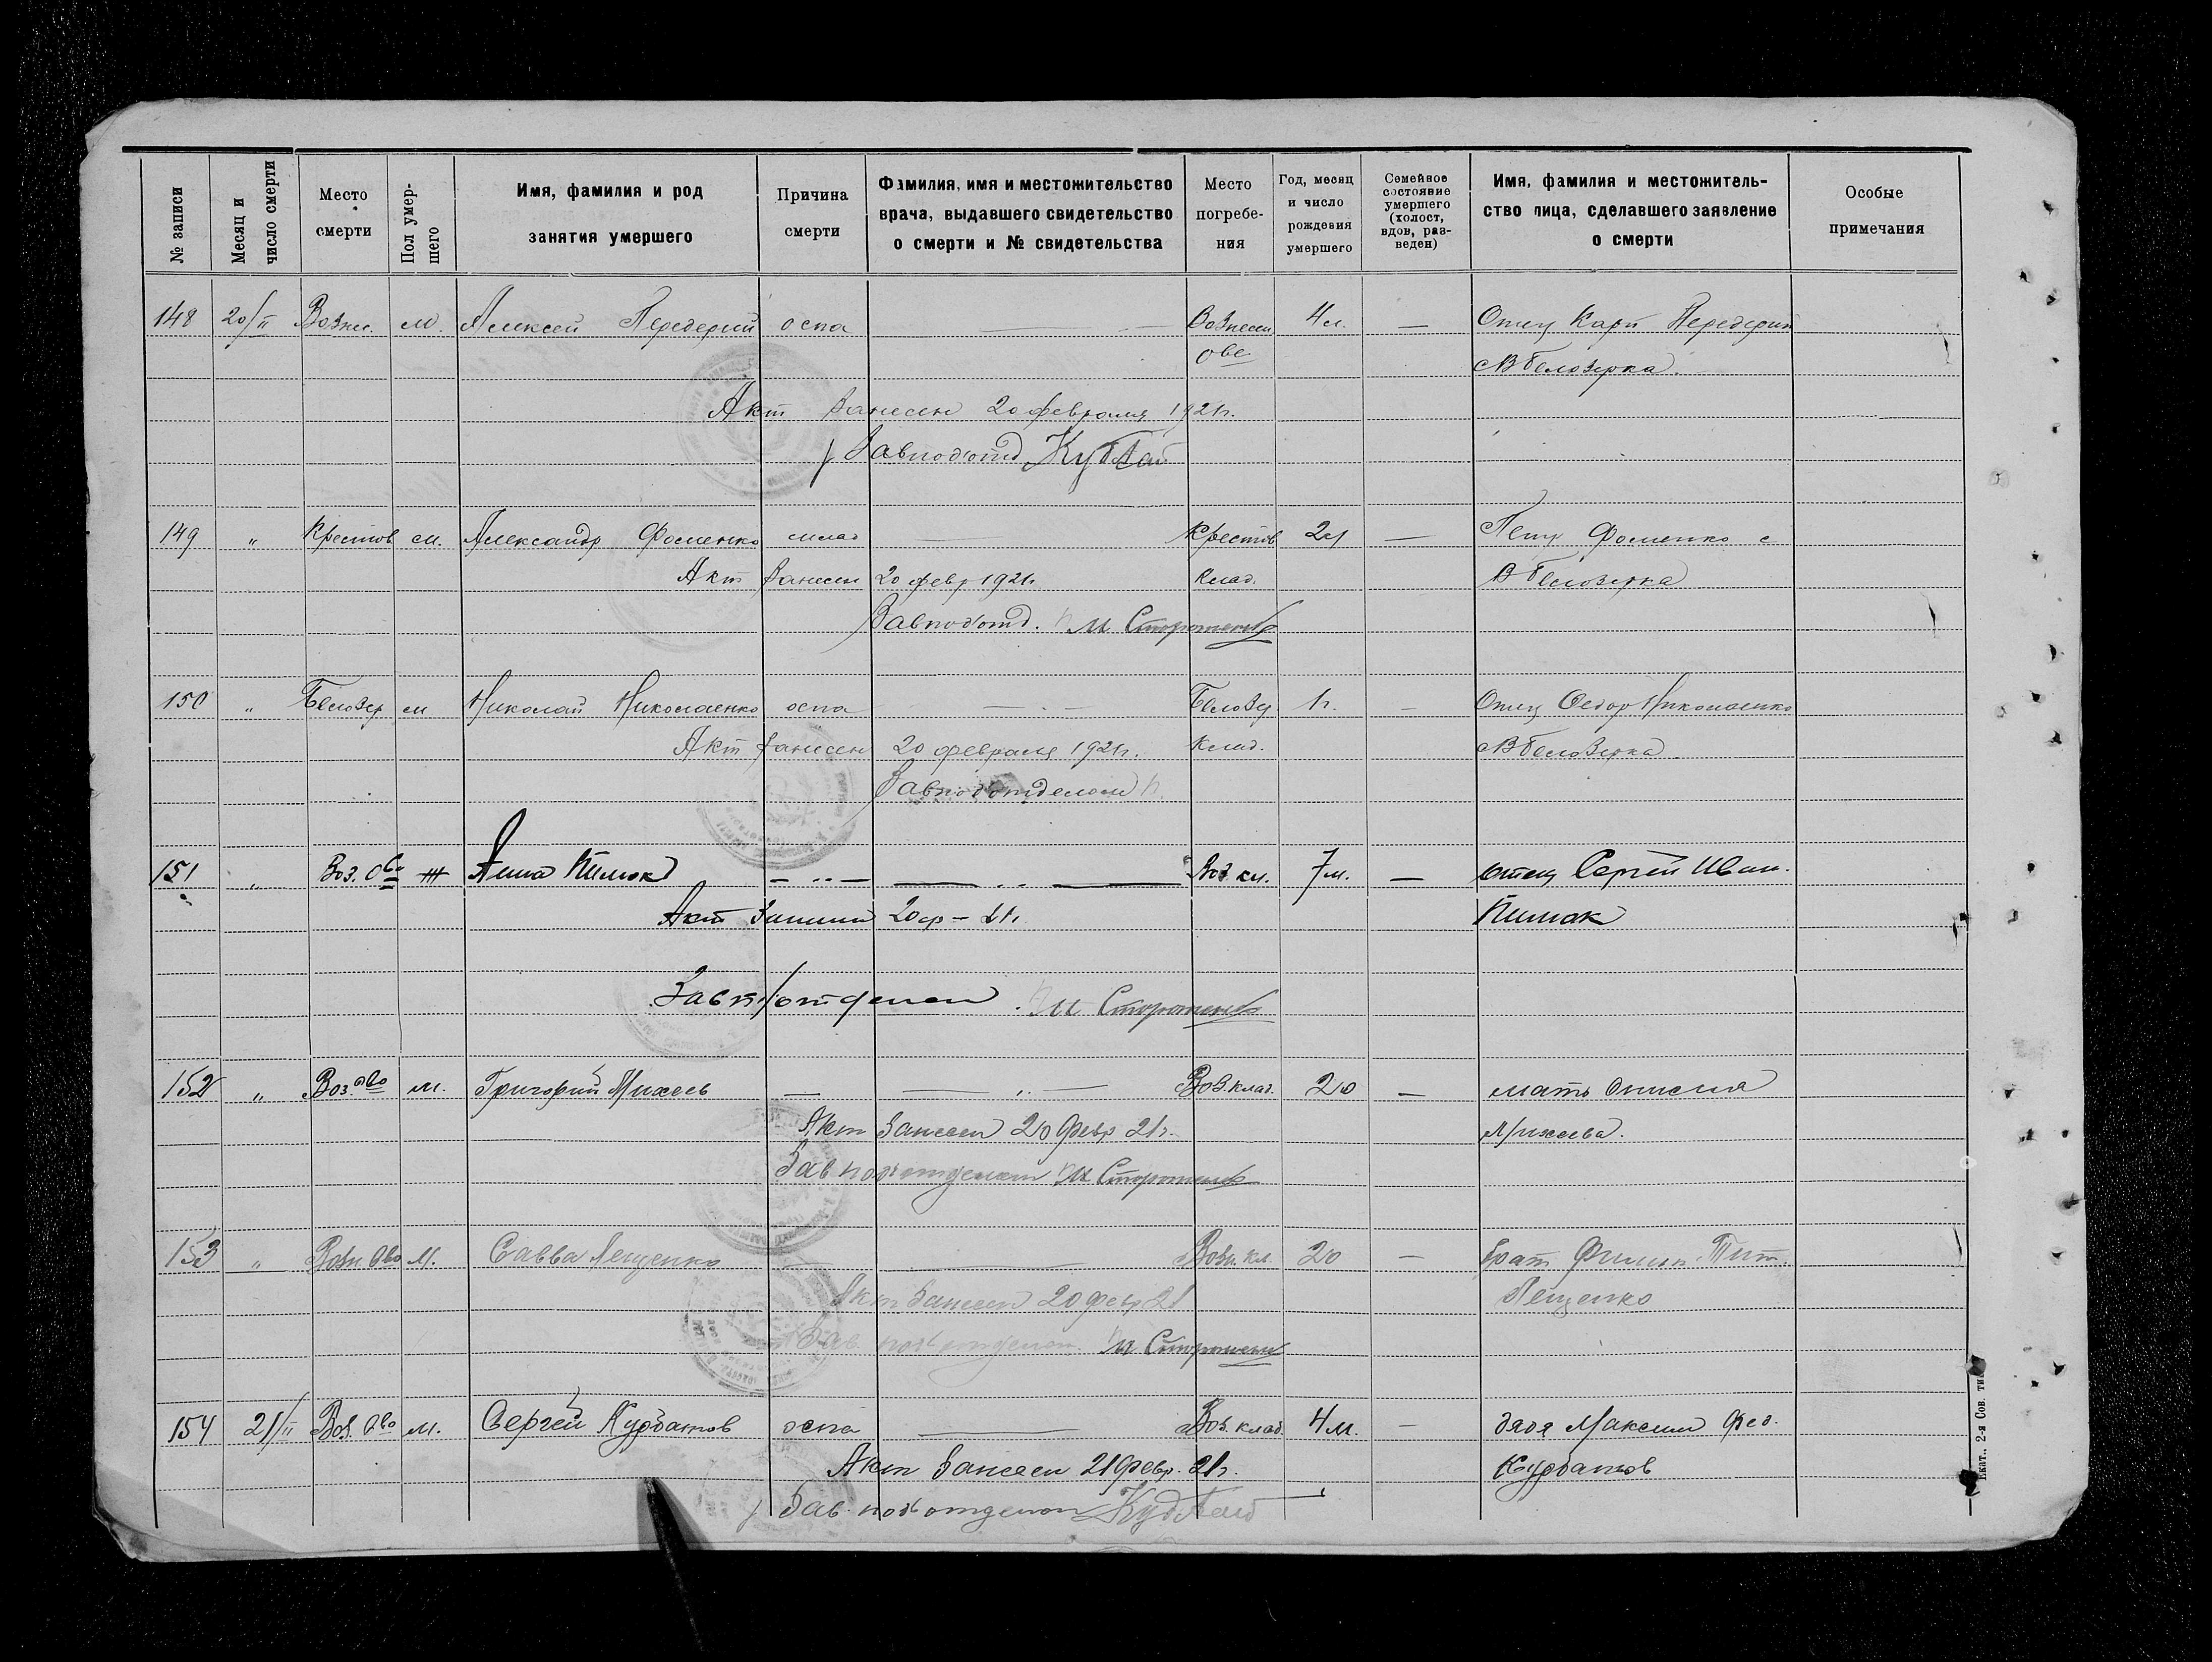 № записи
Месяц и число смерти
Место смерти
Пол умер-шего
Имя, фамилия и род занятия умершего
Причина смерти
Фамилия, имя и местожительство врача, выдавшего свидетельство о смерти и № свидетельства
Место погребе-ния
Год, месяц и число рождения умершего
Семейное состояние умершего (холост, вдов, раз-веден)
Имя, фамилия и местожитель-ство лица, сделавшего заявление о смерти
Особые примечания
148 20/II Возне. м. Алексей Передерий оспа Вознесен 4 м. — Отец Карп Передерий
ове с В Белозерка.
Акт занесен 20 февраля 1921 г.
Завподотд
149 " Крестов м. Александр Фоменко млад — Крестов 2 —  Фоменко с
Акт занесен 20 февр 1921 г. клад. В Белозерка
Завподотд. М Стороженко
150 " Белозер м Николай Николаенко оспа — Белозер 1 г. — Отец Федор Николаенко
Акт занесен 20 февраля 1921 г. клад. с В Белозерка
Завподотделом
151 " Воз. Ово Ж Анна — — Воз кл. 7 м. — отец Сергей Иван.
Акт 20 ф – 21 г.
М Стороженко
152 " Воз. ово м. Григорий Михеев — — Воз. клад. 20 — мать
Акт занесен 20 февр 21 г. Михеева.
Зав подотделом М Стороженко
153 " Возн. Ово М. Савва Лещенко — — Возн. кл. 20 — брат Филип. Тит.
Акт занесен 20 февр 21 Лещенко
Зав. подотделом М Стороженко
154 21/II Воз. Ово м. Сергей Курбатов оспа — Воз. клад. 4 м. — дядя Максим Фед.
Акт занесен 21 февр. 21 г. Курбатов
Зав. подотделом
Екат., 2-я Сов. тип